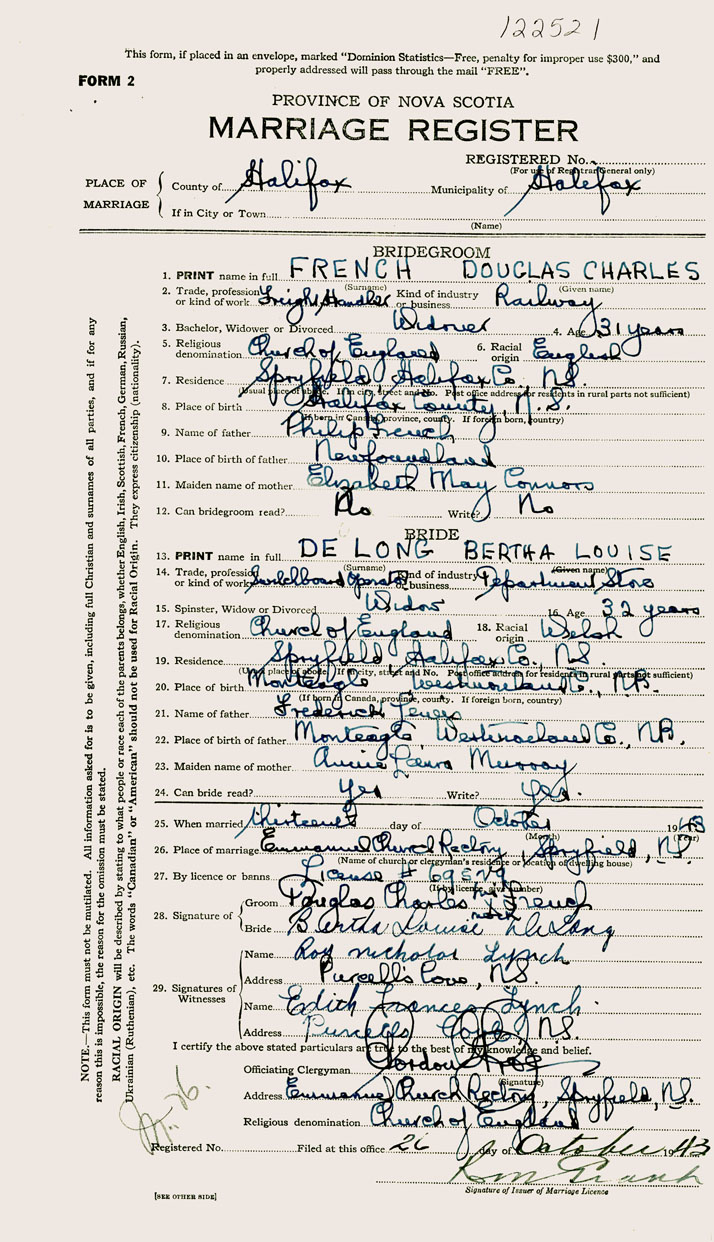 122521
This form, if placed in an envelope, marked “Dominion Statistics—Free, penalty for improper use $300,” and
properly addressed will pass through the mail “FREE”.
FORM 2
PROVINCE OF NOVA SCOTIA
MARRIAGE REGISTER
REGISTERED No.
(For use of Registrar General only)
PLACE OF MARRIAGE
County of Halifax Municipality of Halifax
If in City or Town
(Name)
BRIDEGROOM
1. PRINT name in full FRENCH DOUGLAS CHARLES
(Surname) (Given name)
2. Trade, profession or kind of work Freight Handler Kind of industry or business Railway
3. Bachelor, Widower or Divorced Widower 4. Age 31 years
5. Religious denomination Church of England 6. Racial origin English
7. Residence Spryfield, Halifax Co., N.S.
(Usual place of abode. If in city, street and No. Post office address for residents in rural parts not sufficient)
8. Place of birth Halifax County, N.S.
(If born in Canada, province, county. If foreign born, country)
9. Name of father Philip French
10. Place of birth of father Newfoundland
11. Maiden name of mother Elizabeth May Connors
12. Can bridegroom read? No Write? No
BRIDE
13. PRINT name in full DE LONG BERTHA LOUISE
(Surname) (Given name)
14. Trade, profession or kind of work Switchboard Operator Kind of industry or business Department Store
15. Spinster, Widow or Divorced Widow 16. Age 32 years
17. Religious denomination Church of England 18. Racial origin Welsh
19. Residence Spryfield, Halifax Co., N.S.
(Usual place of abode. If in city, street and No. Post office address for residents in rural parts not sufficient)
20. Place of birth Monteagle Westmoreland Co., N.B.
(If born in Canada, province, county. If foreign born, country)
21. Name of father Frederick
22. Place of birth of father Monteagle Westmoreland Co., N.B.
23. Maiden name of mother Annie Laura Murray
24. Can bride read? Yes Write? Yes.
25. When married thirteenth day of October 1943
(Month) (Year)
26. Place of marriage Emmanuel Church Rectory, Spryfield, N.S.
(Name of church or clergyman's residence or location of dwelling house)
27. By licence or banns License #
(If by licence, give number)
28. Signature of
Groom Douglas Charles French
mark
Bride Bertha Louise DeLong
29. Signatures of Witnesses
Name Roy Nicholas Lynch
Address Purcell's Cove, N.S.
Name Edith Frances Lynch
Address Purcells Cove, N.S.
I certify the above stated particulars are true to the best of my knowledge and belief.
Officiating Clergyman Gordon
(Signature)
Address Emmanuel Church Rectory, Spryfield, N.S.
Religious denomination Church of England
Registered No. Filed at this office 26 day of October 1943
Signature of Issuer of Marriage Licence
[SEE OTHER SIDE]
NOTE.—This form must not be mutilated. All information asked for is to be given, including full Christian and surnames of all parties, and if for any
reason this is impossible, the reason for the omission must be stated.
RACIAL ORIGIN will be described by stating to what people or race each of the parents belongs, whether English, Irish, Scottish, French, German, Russian,
Ukrainian (Ruthenian), etc. The words “Canadian” or “American” should not be used for Racial Origin. They express citizenship (nationality).